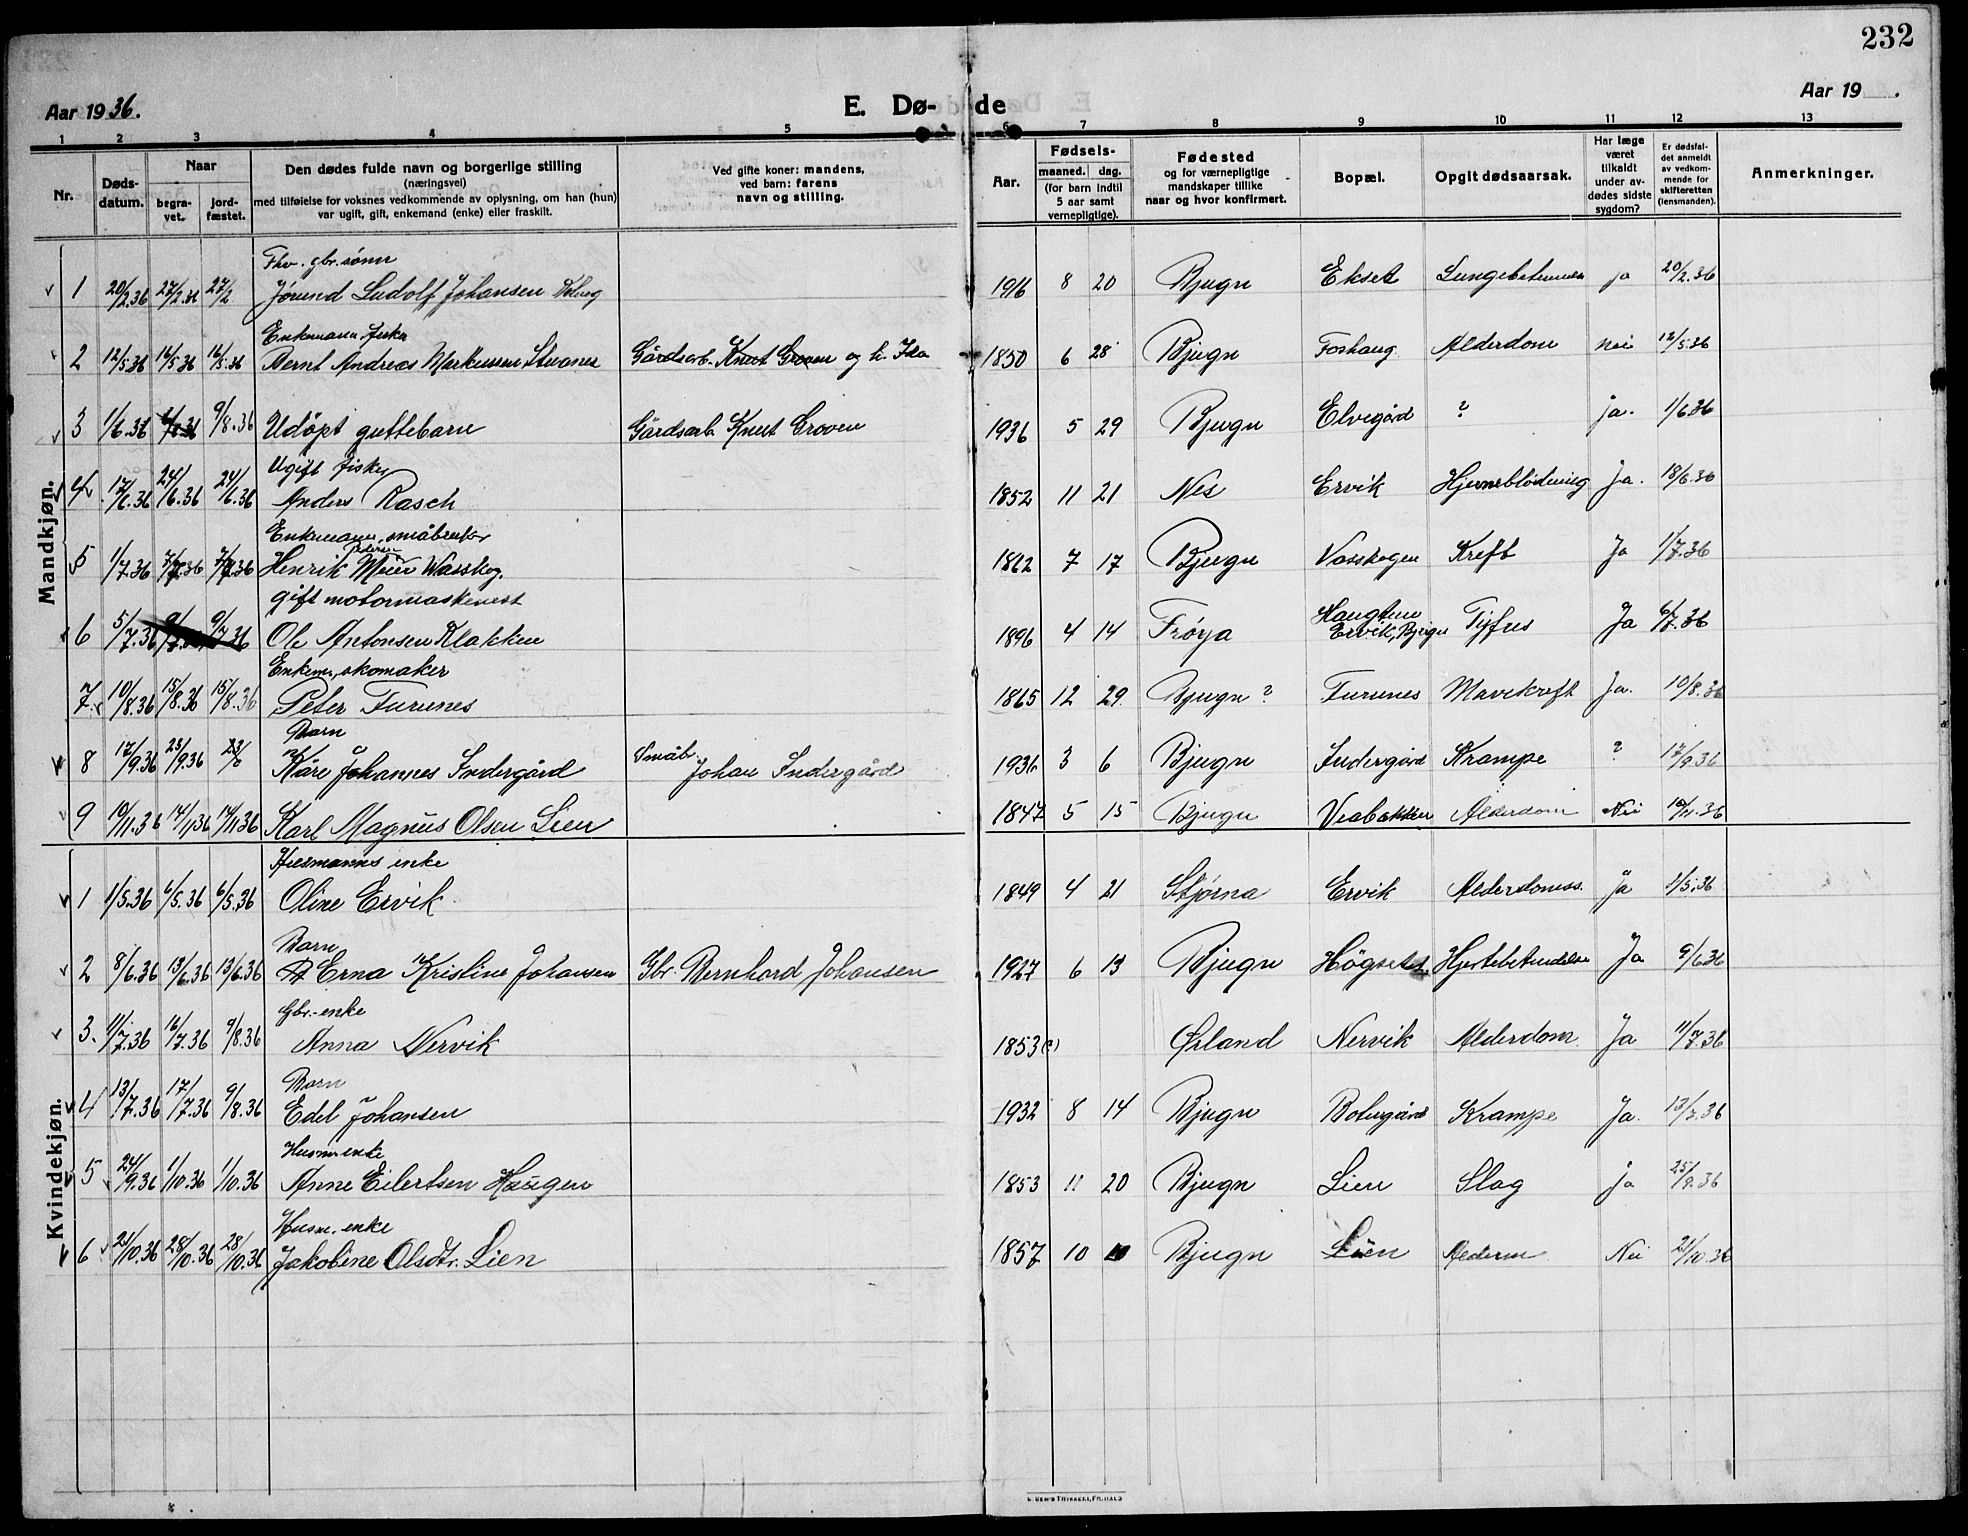 232
Aar 1936.
E. Dø-
de
Aar 19 .
1 2 3 4 5 6 7 8 9 10 11 12 13
Nr.
Døds-
datum.
Naar
begra-
vet.
jord-
fæstet.
Den dødes fulde navn og borgerlige stilling
(næringsvei)
med tilføielse for voksnes vedkommende av oplysning, om han (hun)
var ugift, gift, enkemand (enke) eller fraskilt.
Ved gifte koner: mandens,
ved barn: farens
navn og stilling.
Aar.
Fødsels-
maaned. dag.
(for barn indtil
5 aar samt
vernepligtige).
Fødested
og for værnepligtige
mandskaper tillike
naar og hvor konfirmert.
Bopæl.
Opgit dødsaarsak.
Har læge
været
tilkaldt
under av-
dødes sidste
sygdom?
Er dødsfal-
det anmeldt
av vedkom-
mende for
skifteretten
(lensmanden).
Anmerkninger.
Mandkjøn.
Fhv. gbr. sønn
1 20/2.36 27/2.36 27/2 Jørund Ludolf Johansen 1916 8 20 Bjugn Ekset ja 20/2.36
Enkemann, fisker
2 12/5.36 16/5.36 16/5.36 Bernt Andreas Markussen Gårdsarb. Knut Groven og h. Ida 1850 6 28 Bjugn Foshaug Alderdom nei 12/5.36
3 1/6.36 9/8.36 Udøpt guttebarn Gårdsarb. Knut Groven 1936 5 29 Bjugn Elvegård ? ja. 1/6.36
Ugift fisker
4 17/6.36 24/6.36 24/6.36 Anders Rasch 1852 11 21 Nes Ervik Hjerneblødning ja. 18/6.36
Enkemann, småbruker
Pedersen
5 1/7.36 7/7.36 7/7.36 Henrik Meier Wasskog. 1862 7 17 Bjugn Vasskogen Kreft Ja 1/7.36
gift motormaskinist
6 5/7.36 9/7.36 9/7.36 Ole Antonsen Klakken 1896 4 14 Frøya Haugtun Ervik, Bjugn Tyfus Ja 6/7.36
Enkem., skomaker
7. 10/8.36 15/8.36 15/8.36 Peter Furunes 1865 12 29 Bjugn ? Furunes Mavekreft Ja. 10/8.36
Barn
8 17/9.36 23/9.36 Kåre Johannes Indergård Småbr. Johan Indergård 1936 3 6 Bjugn Indergård Krampe ? 17/9.36
9 10/11.36 14/11.36 14/11.36 Karl Magnus Olsen Lien 1847 5 15 Bjugn Veabakken Alderdom Nei 10/11.36
Kvindekjøn.
Husmanns enke
1 1/5.36 6/5.36 6/5.36 Oline Ervik 1849 4 21 Stjørna Ervik Alderdomss. ja
Barn
2 8/6.36 13/6.36 13/6.36 Erna Kristine Johansen Gbr. Bernhard Johansen 1927 6 13 Bjugn Høgseth Hjertebetendelse Ja 9/6.36
Gbr.-enke
3. 11/7.36 16/7.36 9/8.36 Anna Nervik 1853 (?) Ørland Nervik Alderdom. Ja 11/7.36
Barn
4 13/7.36 17/7.36 9/8.36 Edel Johansen 1932 8 14 Bjugn Botngård Krampe Ja. 13/7.36
Husm. enke
5 24/9.36 1/10.36 1/10.36 Anne Eilertsen Haugen 1853 11 20 Bjugn Lien Slag ja 25/9.36
Husm. enke
6 21/10.36 28/10.36 28/10.36 Jakobine Olsdtr. Lien 1857 10 10 Bjugn Lien Alderm Nei 21/10.36